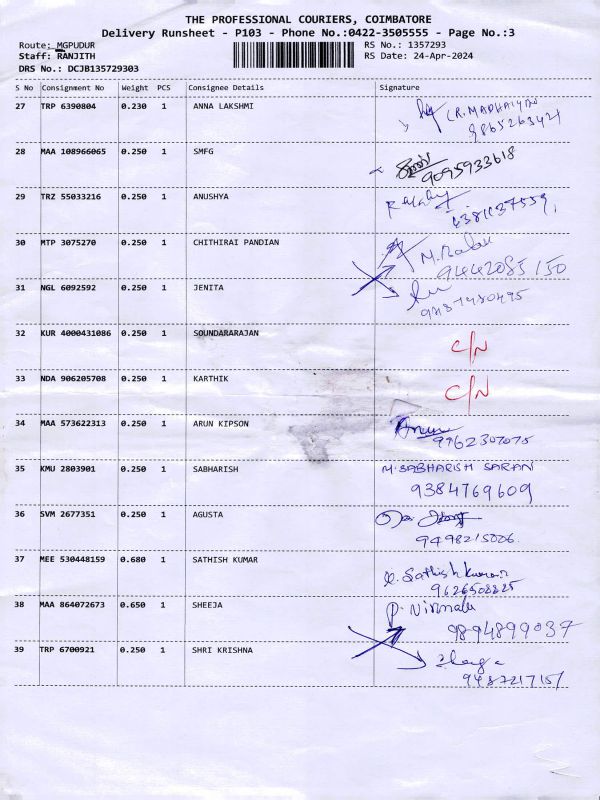 THE PROFESSIONAL COURIERS, COIMBATORE
Delivery Runsheet - P103 - Phone No.:0422-3505555 - Page No.:3
Route: MGPUDUR
RS No.: 1357293
Staff: RANJITH
RS Date: 24-Apr-2024
DRS No.: DCJB135729303
S No Consignment No Weight PCS Consignee Details Signature
27 TRP 6390804 0.230 1 ANNA LAKSHMI
9865263421
28 MAA 108966065 0.250 1 SMFG
9095933618
29 TRZ 55033216 0.250 1 ANUSHYA
30 MTP 3075270 0.250 1 CHITHIRAI PANDIAN
9442085150
31 NGL 6092592 0.250 1 JENITA
32 KUR 4000431086 0.250 1 SOUNDARARAJAN
C/N
33 NDA 906205708 0.250 1 KARTHIK
C/N
34 MAA 573622313 0.250 1 ARUN KIPSON
9962307075
35 KMU 2803901 0.250 1 SABHARISH M. SABHARISH SARAN
9384769609
36 SVM 2677351 0.250 1 AGUSTA
9498215006.
37 MEE 530448159 0.680 1 SATHISH KUMAR
Sathish kumar
9626508225
38 MAA 864072673 0.650 1 SHEEJA P. Nirmala
9894899037
39 TRP 6700921 0.250 1 SHRI KRISHNA
9487217151